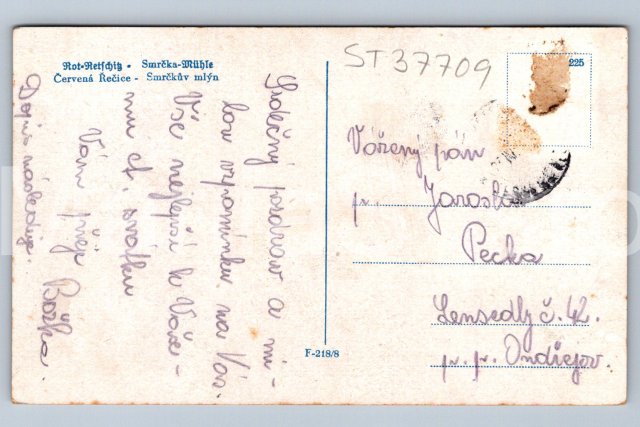 Rot-Retschitz - Smrčka-Mühle
Červená Řečice - Smrčkův mlýn
ST 37709
225
Srdečný pozdrav a mi-
lou vzpomínku na Vás.
Vše nejlepší k Vaše-
mu ct. svátku
Vám přeje Božka.
Dopis následuje.
Vážený pán
Jarosla
Pecka
Lensedly č. 42.
p. p. Ondřejov.
F-218/8